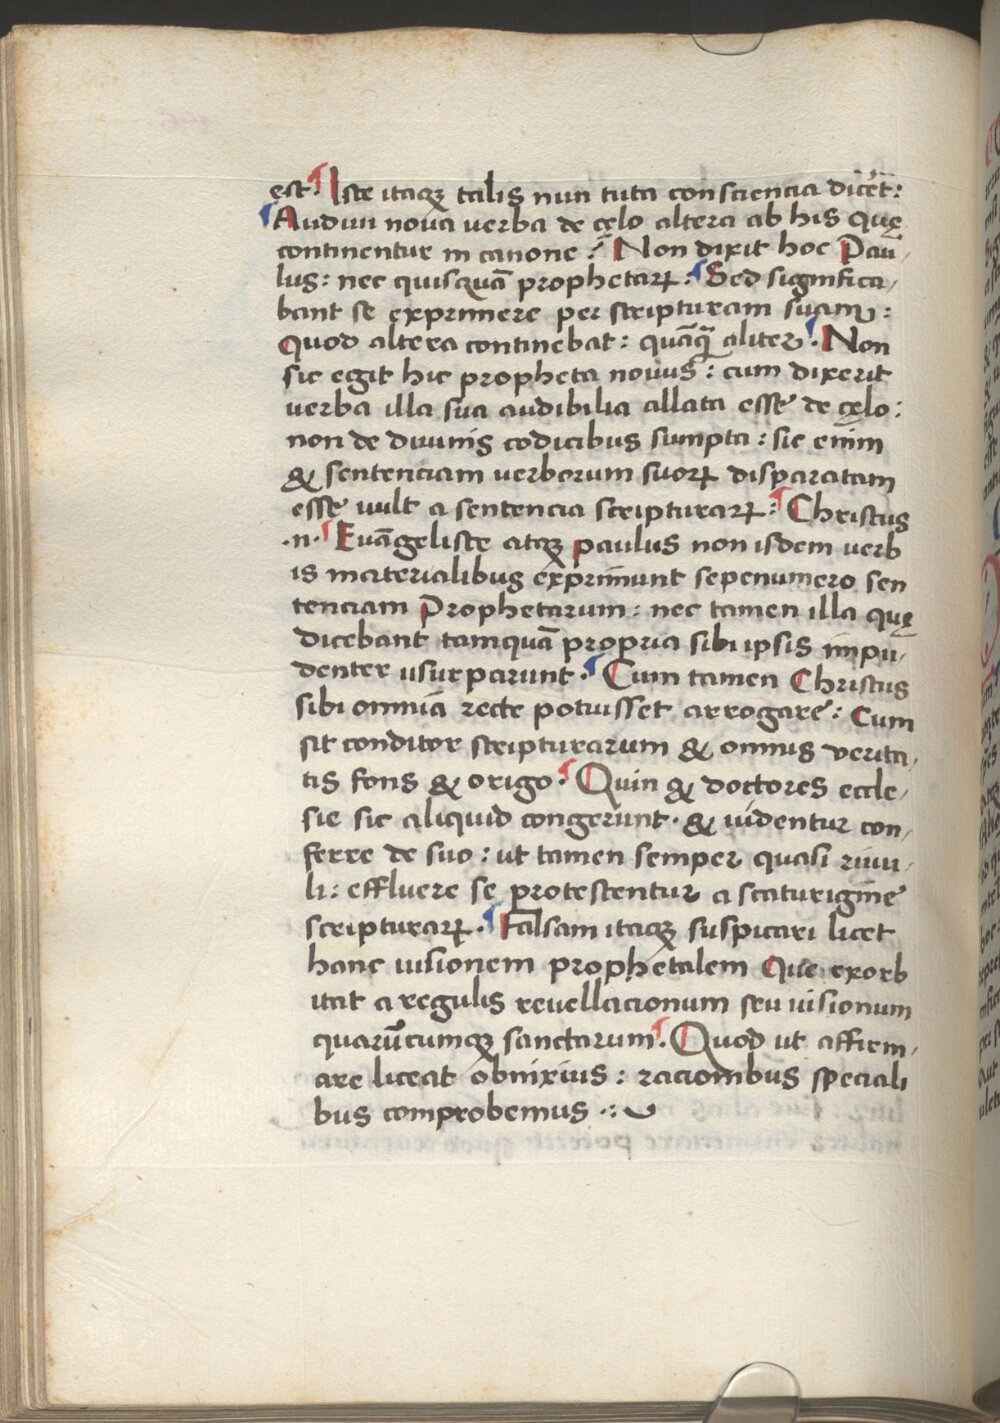 est. ¶ Iste itaqꝫ talis nun tuta consciencia dic̄et:
¶ Audiui noua uerba de cęlo altera ab his quę
continentur in canone: ¶ Non dixit hoc Pau-
lus: nec quisquā prophetaꝝ: ¶ Sed significa-
bant se exprimere per scripturam suam:
Quod altera continebat: quāqꝫ aliter. ¶ Non
sic egit hic propheta nouus: cum dixerit
uerba illa sua audibilia allata esse de cęlo:
non de diuinis codicibus sumpta: sic enim
& sentenciam uerborum suoꝝ disparatam
esse uult a sentencia scripturaꝝ: ¶ Christus
.n. ¶ Euāngeliste atqꝫ paulus non isdem uerb
is materialibus exprimunt sepenumero sen
tenciam Prophetarum: nec tamen illa quę
dicebant tamquā propria sibi ipsis impu-
denter usurparunt. ¶ Cum tamen Christus
sibi omnia recte potuisset arrogare: Cum
sit conditor scripturarum & omnis verita-
tis fons & origo. ¶ Quin & doctores eccle-
sie sic aliquid congerunt. & uidentur con-
ferre de suo: ut tamen semper quasi riuu-
li: effluere se protestentur a scaturigine
scripturaꝝ. ¶ Falsam itaqꝫ suspicari licet
hanc uisionem prophetalem Que exorb
itat a regulis reuellacionum seu uisionum
quarūcumqꝫ sanctarum. ¶ Quod ut affirm-
are liceat obnixius: racionibus speciali
bus comprobemus .: